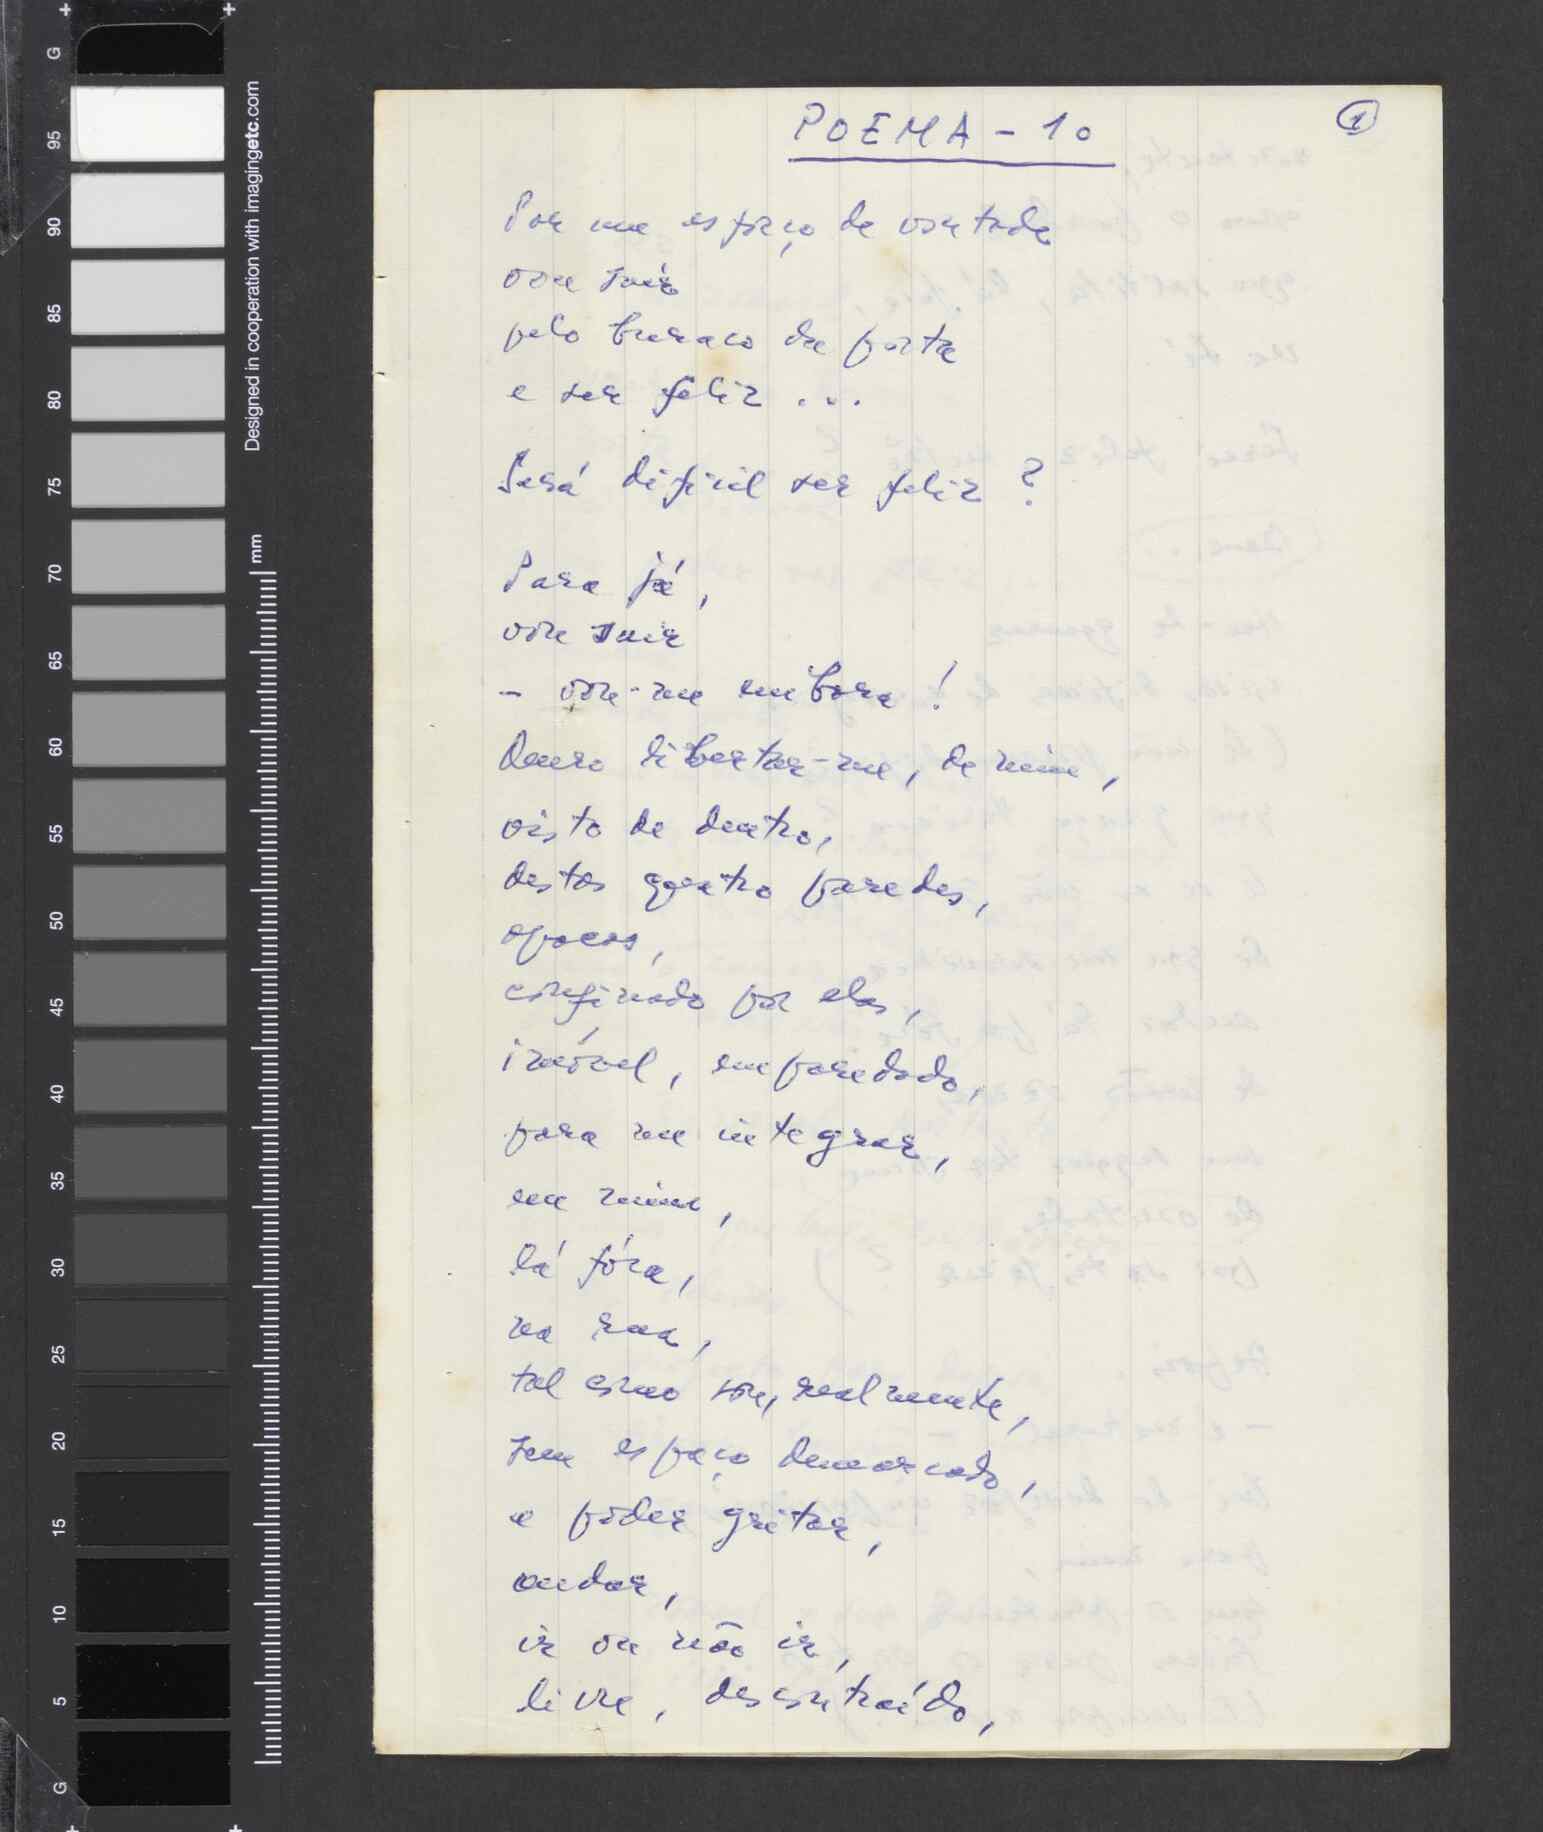 POEMA - 10
1
Por um esforço de vontade
vou sair
pelo buraco da porta
e ser feliz ...
Será dificil ser feliz ?
Para já,
vou sair
- vou-me embora !
Quero libertar-me, de mim,
visto de dentro,
destas quatro paredes,
opacas,
confinado por elas,
imóvel, emparedado,
para me integrar,
em mim,
lá fóra,
na rua,
tal como sou, realmente,
sem espaço demarcado,
e poder gritar,
andar,
ir ou não ir,
livre, descontraído,
Designed in cooperation with imagingetc.com
mm
G
95
90
85
80
75
70
65
60
55
50
45
40
35
30
25
20
15
10
5
G